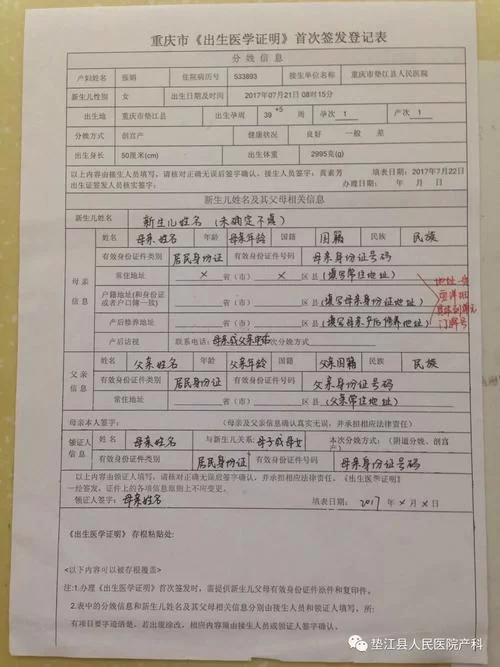 重庆市《出生医学证明》首次签发登记表
分娩信息
产妇姓名 张娟 住院病历号 533893 接生单位名称 重庆市垫江县人民医院
新生儿性别 女 出生日期及时间 2017年07月21日 08时15分
出生地 重庆市垫江县 出生孕周 39+5 周 孕次 1 产次 1
分娩方式 剖宫产 健康状况 良好 一般 差
出生身长 50厘米(cm) 出生体重 2995克(g)
以上内容由接生人员填写,请核对正确无误后签字确认。接生人员签字:黄素芳 填表日期:2017年7月22日
出生证签发人员核实签字: 办理日期: 年 月 日
新生儿姓名及其父母相关信息
新生儿姓名 新生儿姓名(未确定不填)
母亲信息
姓名 母亲姓名 年龄 母亲年龄 国籍 国籍 民族 民族
有效身份证件类别 居民身份证 有效身份证件号码 母亲身份证号码
常住地址 x 省(市) x 区县(填写常住地址)
户籍地址(和身份证或者户口簿一致) 省(市) 区县(填写母亲身份证地址)
产后修养地址 省(市) 区县(填写母亲产后修养地址)
地址一定要详细具体到单元门牌号
产后访视 联系电话:母亲或父亲电话 本次分娩方式
父亲信息
姓名 父亲姓名 年龄 父亲年龄 国籍 父亲国籍 民族 民族
有效身份证件类别 居民身份证 有效身份证件号码 父亲身份证号码
常住地址: 省(市) 区县(父亲常住地址)
母亲本人签字: (母亲及父亲信息确认真实无误,并承担相应法律责任)
领证人信息
姓名 母亲姓名 与新生儿关系:母子或母女 本次分娩方式:(阴道分娩、剖宫产)
有效身份证件类别 居民身份证 有效身份证件号码 母亲身份证号码
以上内容由领证人填写,请核对正确无误后签字确认,并承担相应法律责任。《出生医学证明》
一经签发,证件上的各项信息原则上不应变更。
领证人签字:母亲姓名 填表日期:2017年x月x日
《出生医学证明》存根粘贴处:
<以下内容可以被存根覆盖>
注:1.办理《出生医学证明》首次签发时,需提供新生儿父母有效身份证件原件和复印件。
2.表中的分娩信息和新生儿姓名及其父母相关信息分别由接生人员和领证人填写,所
有项目要字迹清楚,若出现涂改,相应内容须由接生人员或领证人签字确认。
垫江县人民医院产科